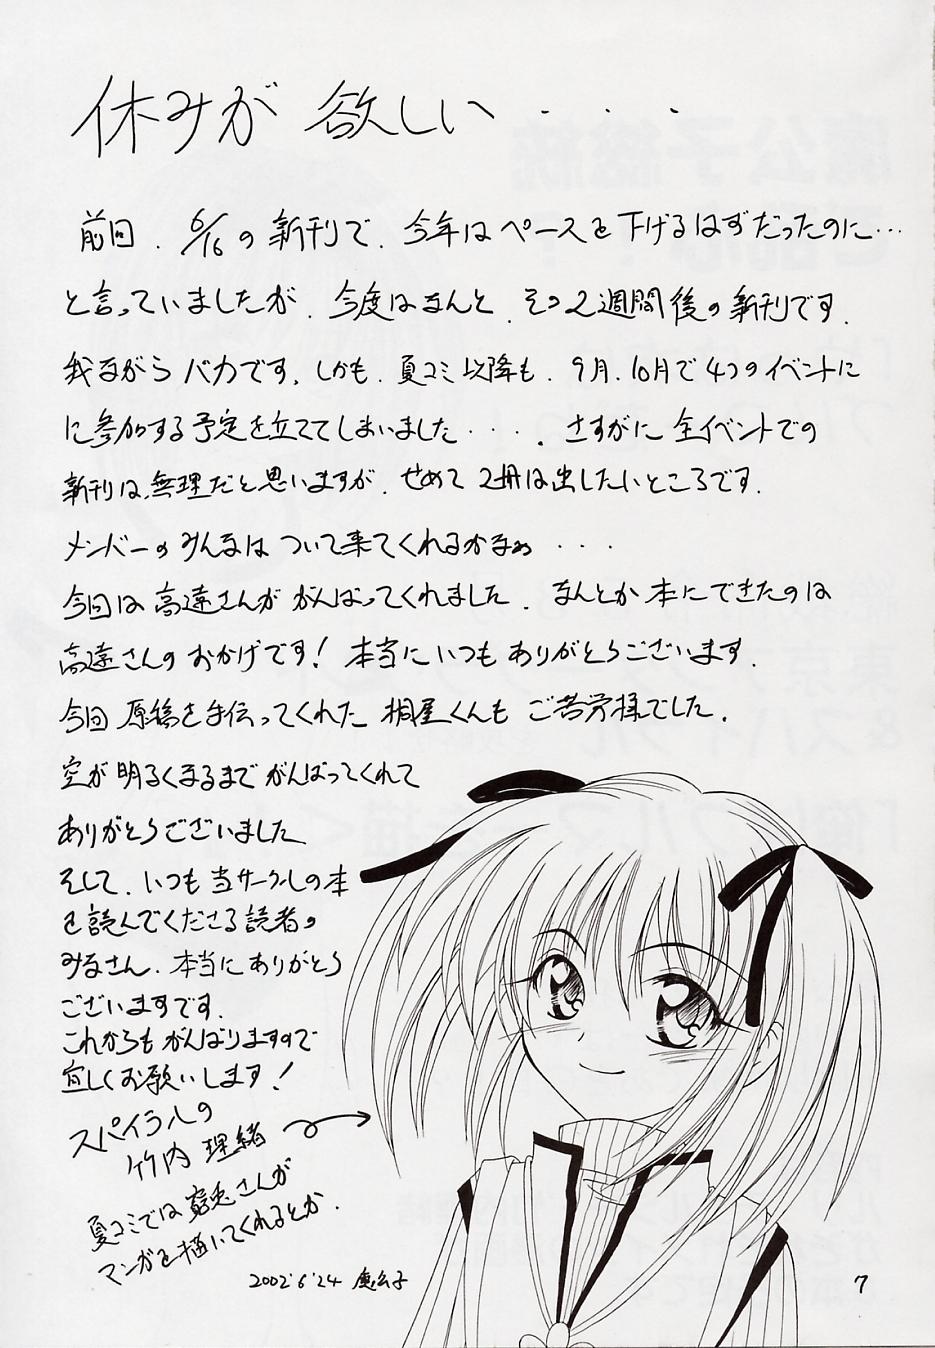 休みが 欲しい・・・
前回、6/16の新刊で、今年はペースを下げるはずだったのに…
と言っていましたが、今度はなんと、その2週間後の新刊です。
我ながらバカです。しかも、夏コミ以降も、9月、10月で4つのイベントに
に参加する予定を立ててしまいました・・・。さすがに全イベントでの
新刊は、無理だと思いますが、せめて2冊は出したいところです。
メンバーのみんなはついて来てくれるかなぁ・・・
今回は高遠さんががんばってくれました。なんとか本にできたのは
高遠さんのおかげです!本当にいつもありがとうございます。
今回原稿を手伝ってくれた桐屋くんもご苦労様でした。
空が明るくなるまでがんばってくれて
ありがとうございました
そして、いつも当サークルの本
を読んでくださる読者の
みなさん、本当にありがとう
ございますです。
これからもがんばりますので
宜しくお願いします!
スパイラルの
竹内 理緒
夏コミでは 兎さんが
マンガを描いてくれるとか。
2002'6'24 魔公子
7